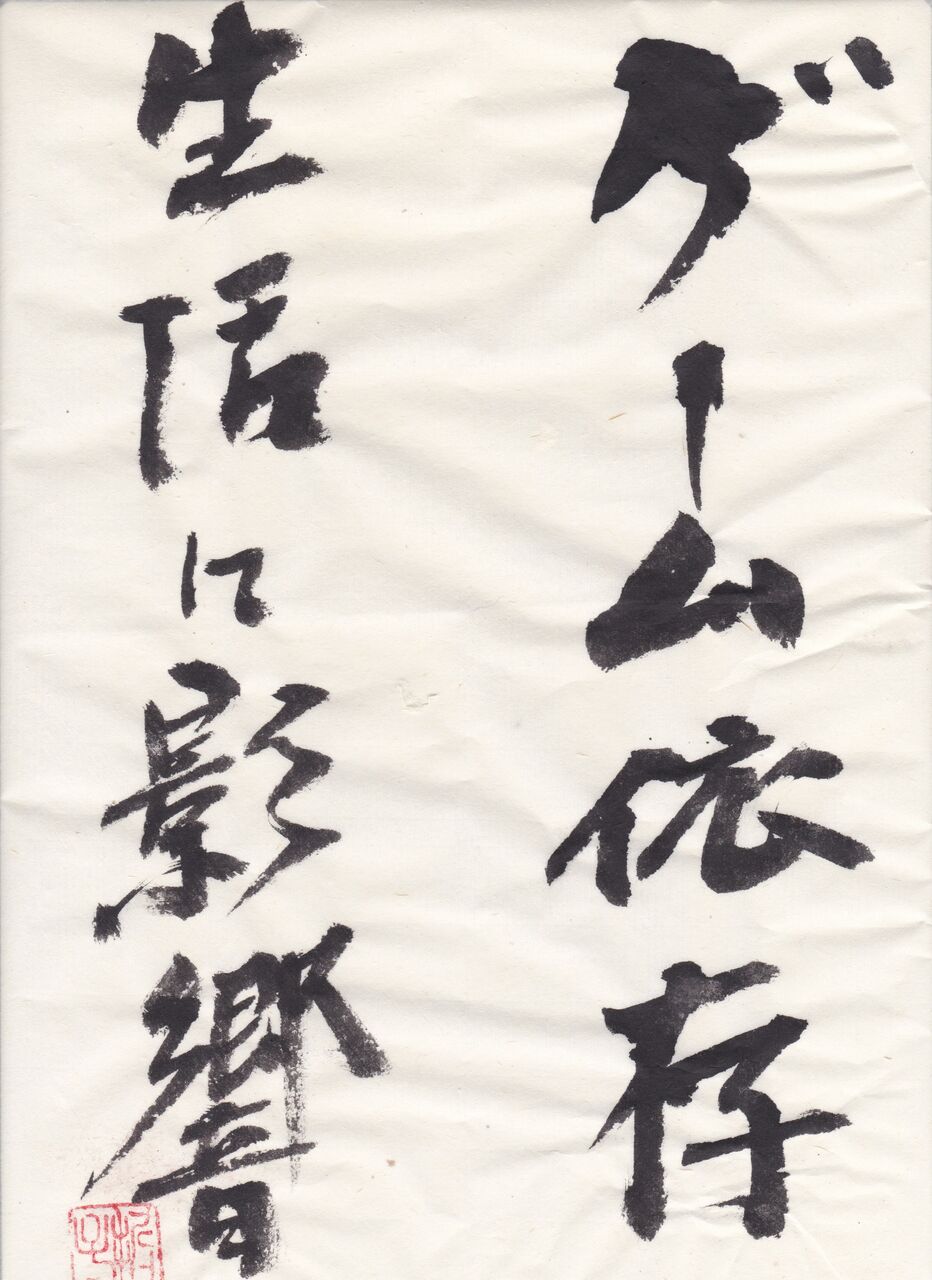 ゲーム依存
生活に影響